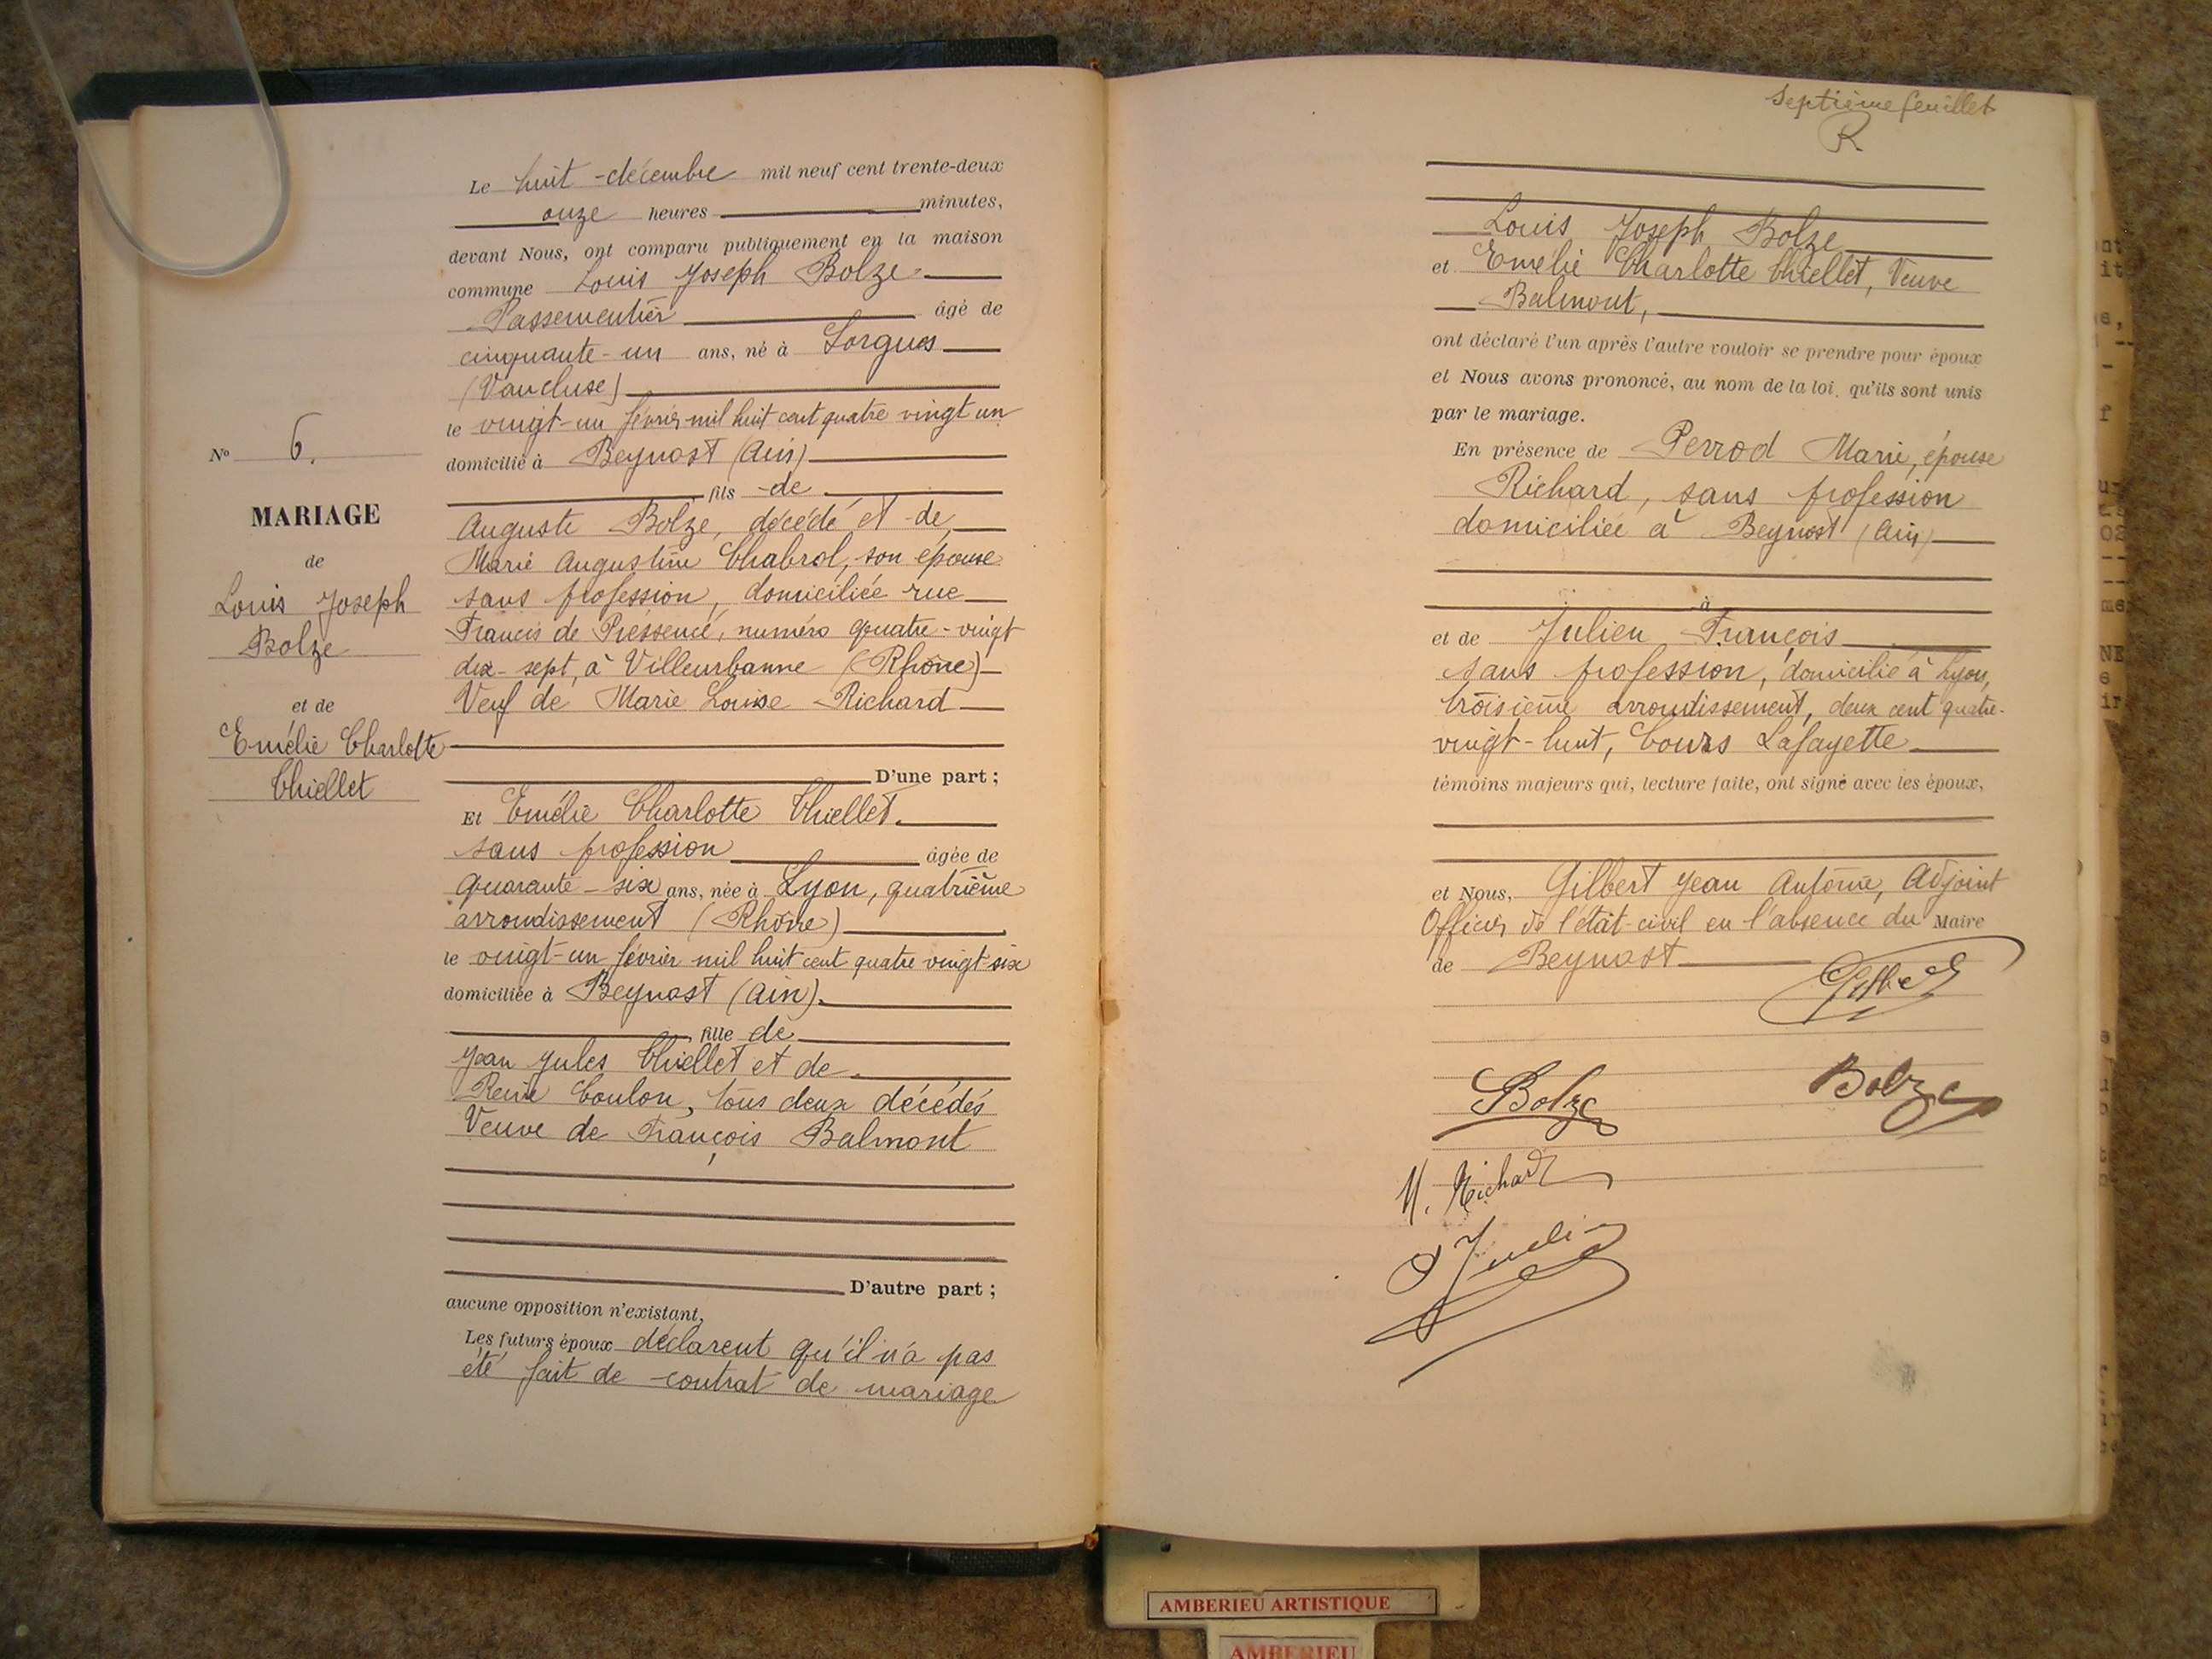 Le huit décembre mil neuf cent trente-deux
onze heures minutes,
devant Nous, ont comparu publiquement en la maison
commune Louis Joseph Bolze
Passementier âgé de
cinquante-un ans, né à Sorgues
(Vaucluse)
le vingt-un février mil huit cent quatre vingt un
domicilié à Beynost (Ain)
fils de
Auguste Bolze, décédé et de
Marie Augustine Chabrol, son épouse
sans profession, domiciliée rue
Francis de Pressencé, numéro quatre-vingt
dix-sept, à Villeurbanne (Rhône)
Veuf de Marie Louise Richard
D'une part ;
Nº 6.
MARIAGE
de
Louis Joseph
Bolze
et de
Emélie Charlotte
Thiellet
Et Emélie Charlotte Thiellet.
sans profession âgée de
quarante-six ans, née à Lyon, quatrième
arrondissement (Rhône)
le vingt-un février mil huit cent quatre vingt six
domiciliée à Beynost (Ain).
fille de
Jean Jules Thiellet et de
Reine Coulon, tous deux décédés
Veuve de François Balmont
D'autre part ;
aucune opposition n'existant,
Les futurs époux déclarent qu'il n'a pas
été fait de contrat de mariage
Septième feuillet
R
Louis Joseph Bolze
et Emélie Charlotte Thiellet, Veuve
Balmont,
ont déclaré l'un après l'autre vouloir se prendre pour époux
et Nous avons prononcé, au nom de la loi, qu'ils sont unis
par le mariage.
En présence de Perrod Marie, épouse
Richard, sans profession
domiciliée à Beynost (Ain)
à
et de Julien François
sans profession, domicilié à Lyon,
troisième arrondissement, deux cent quatre-
vingt-huit, Cours Lafayette
témoins majeurs qui, lecture faite, ont signé avec les époux,
et Nous, Gilbert Jean Antoine, Adjoint
Officier de l'état-civil en l'absence du Maire
de Beynost
Gilbert
Bolze Bolze
M. Richard
Julien
AMBERIEU ARTISTIQUE
AMBERIEU